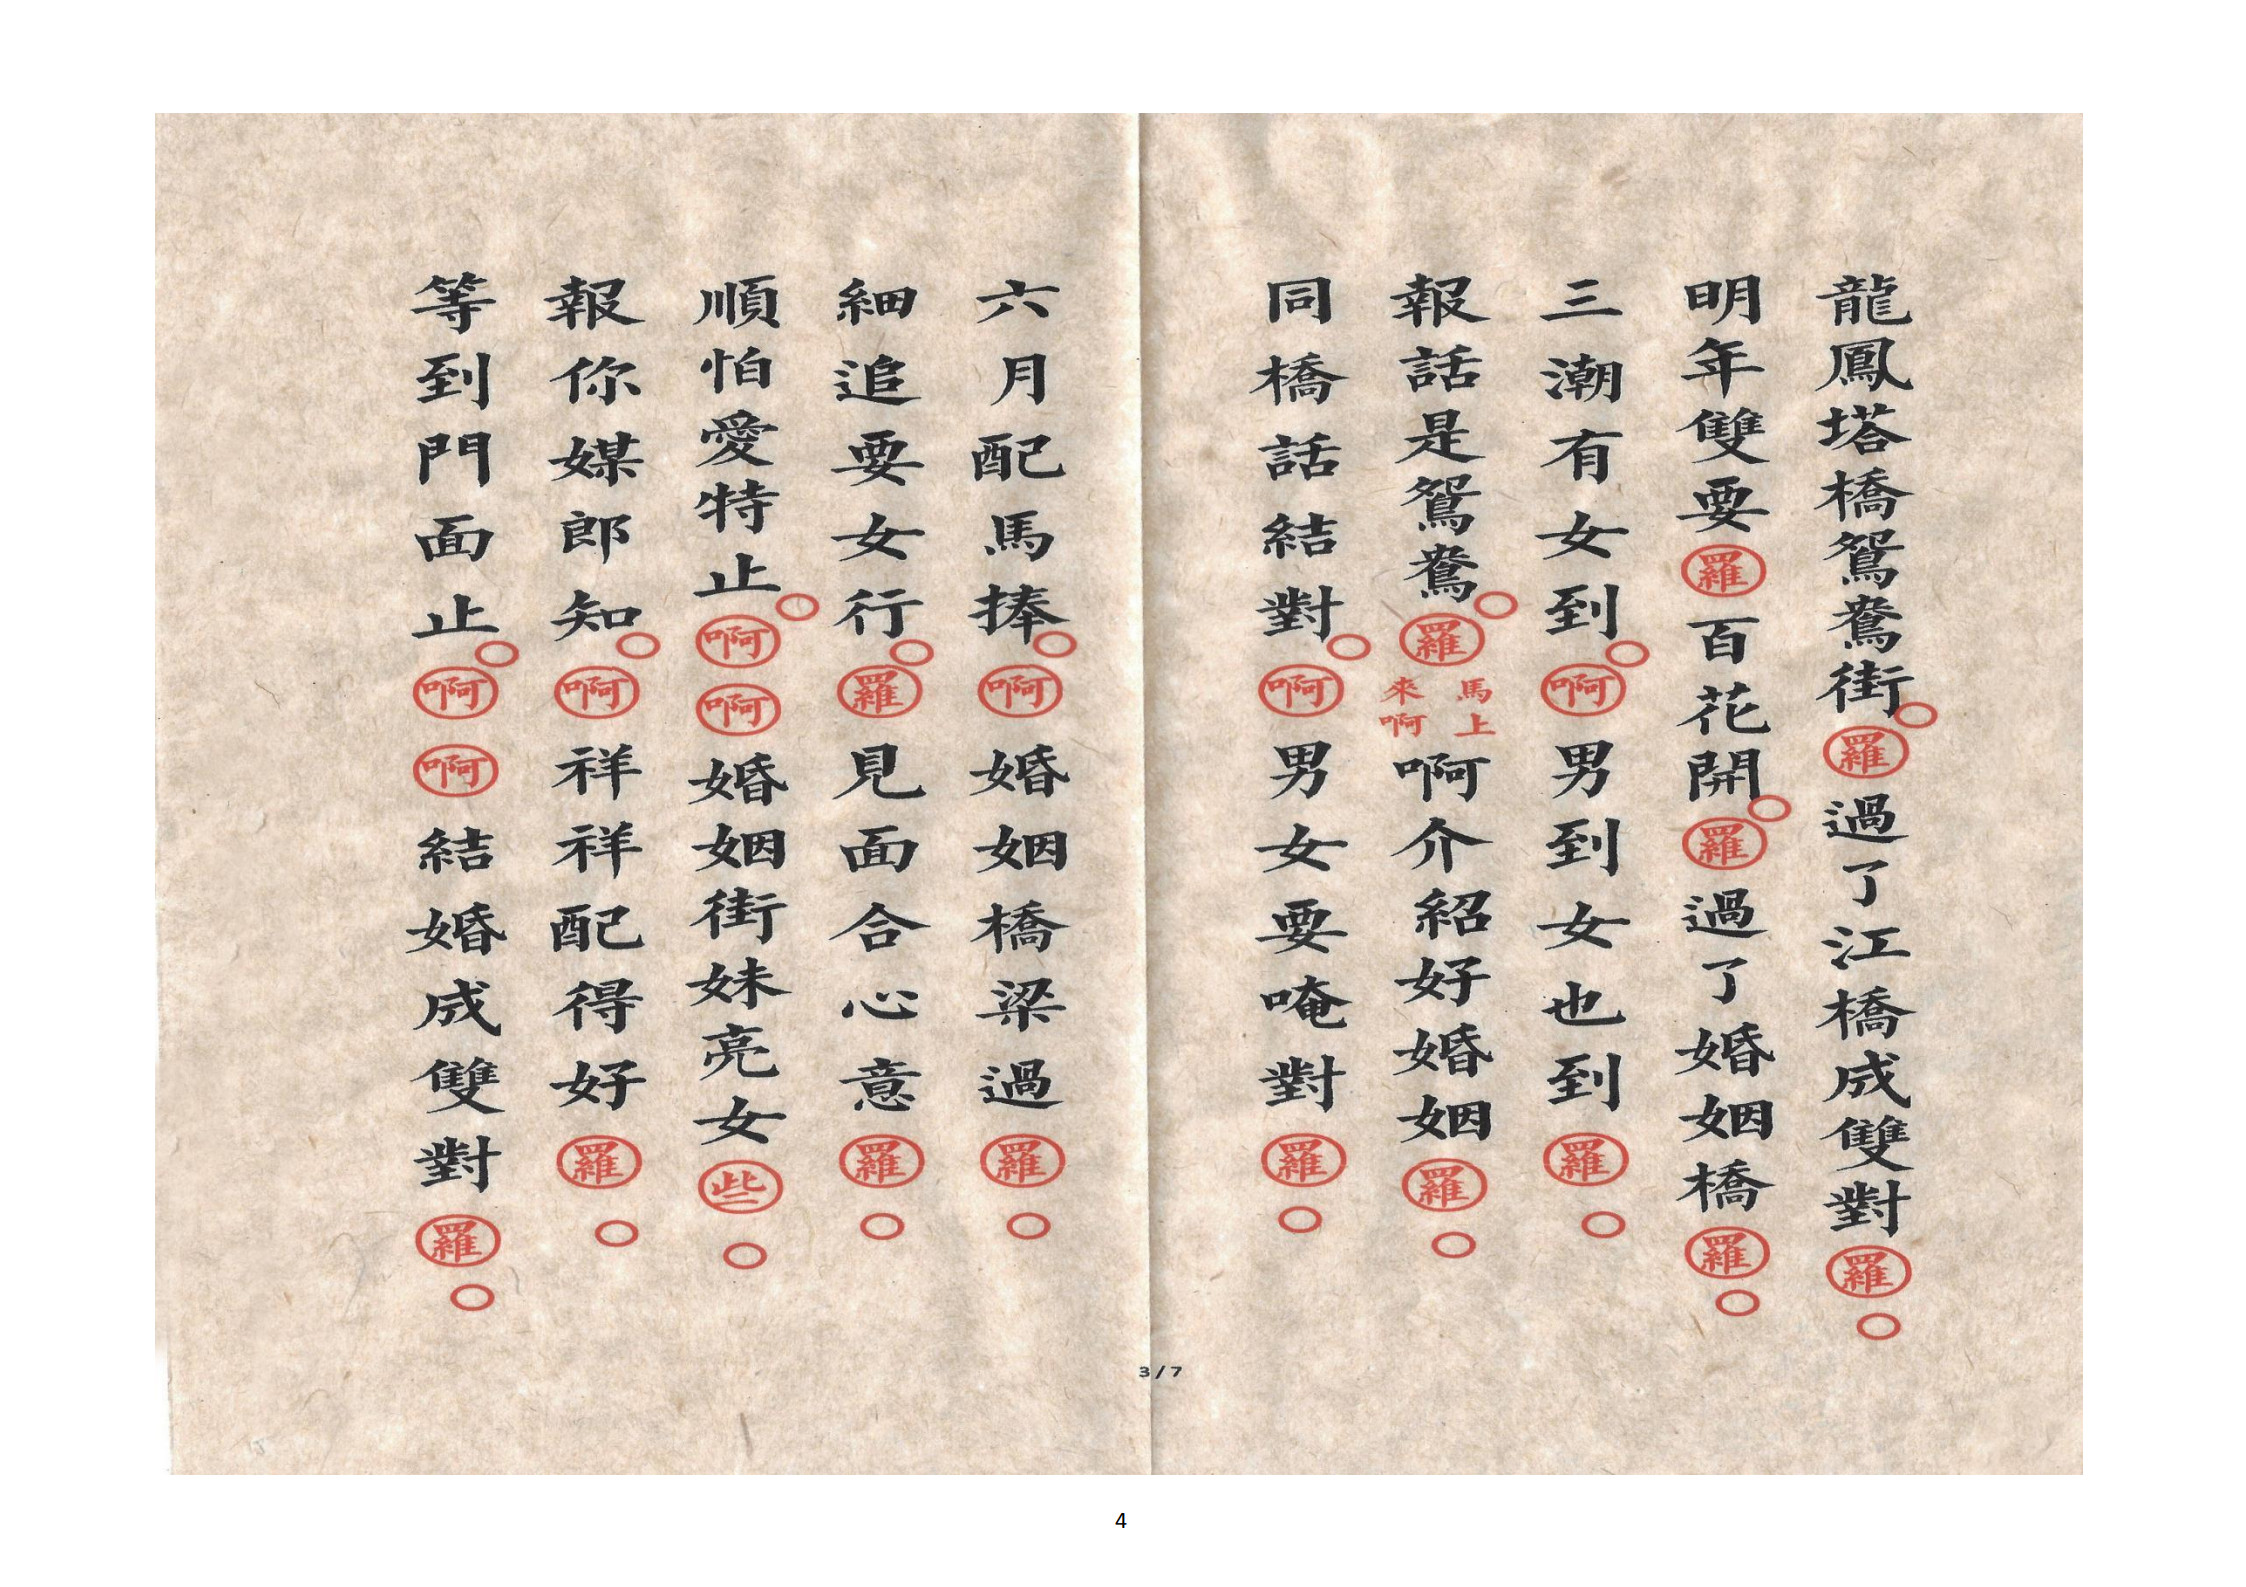 龍鳳塔橋鴛鴦街○羅過了江橋成雙對羅○
明年雙要羅百花開○羅過了婚姻橋羅○
三潮有女到○啊男到女也到羅○
報話是鴛鴦○羅馬上來啊啊介紹好婚姻羅○
同橋話結對○啊男女要唵對羅○
六月配馬捧○啊婚姻橋梁過羅○
細追要女行○羅見面合心意羅○
順怕愛特止○啊啊婚姻街妹亮女些○
報你媒郎知○啊祥祥配得好羅○
等到門面止○啊啊結婚成雙對羅○
3/7
4